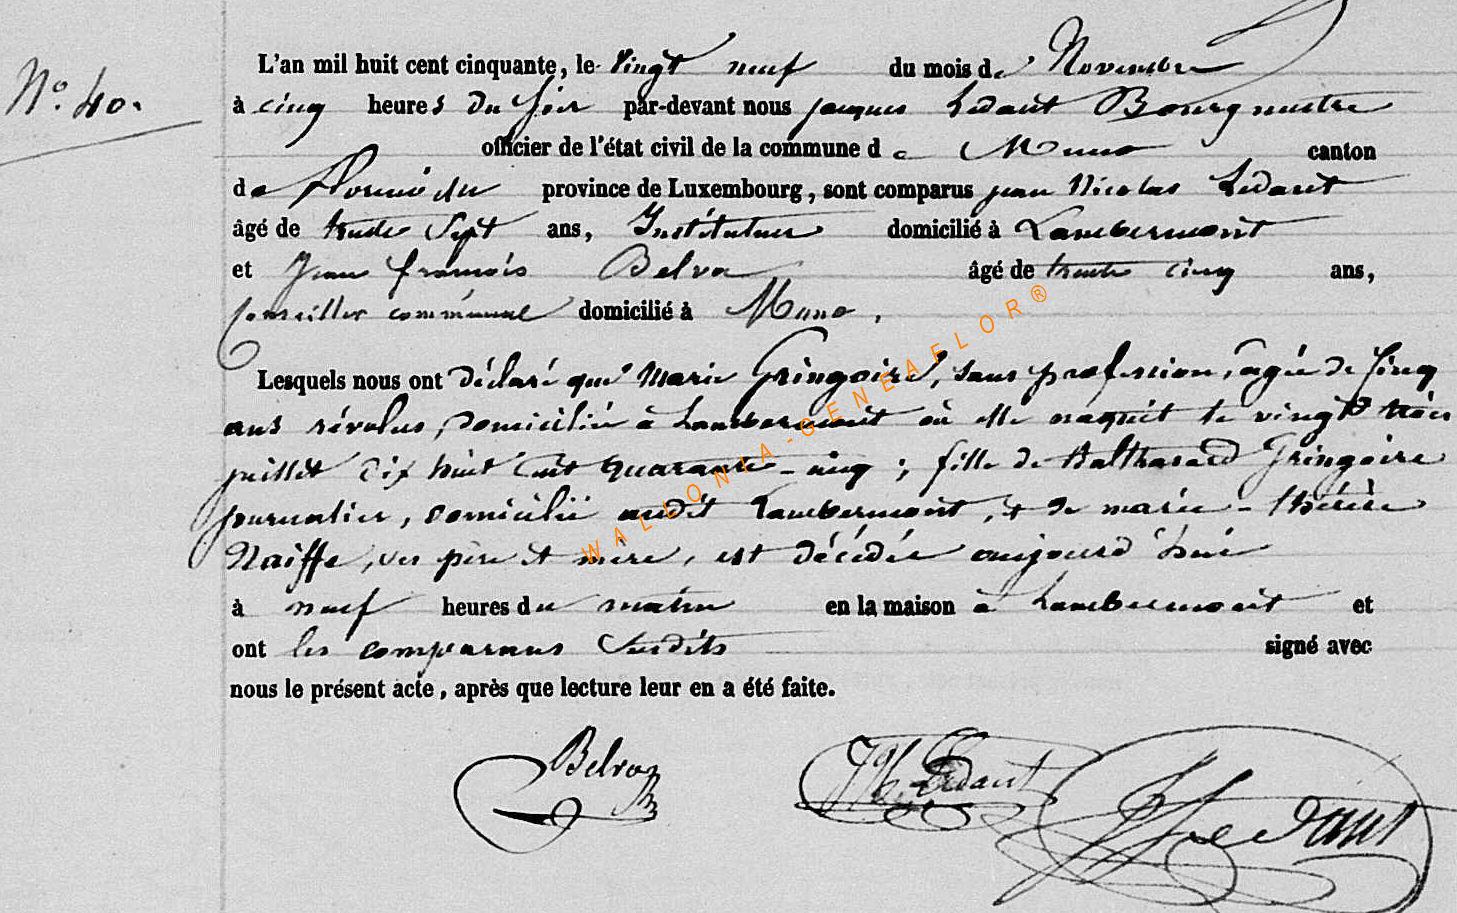 N.° 40.
L'an mil huit cent cinquante, le vingt neuf du mois de Novembre
à cinq heures du soir par-devant nous jacques Ledant Bourgmestre
officier de l'état civil de la commune de Muno canton
de Florenville province de Luxembourg, sont comparus jean Nicolas Ledant
âgé de trente sept ans, Instituteur domicilié à Lambermont
et Jean françois Belva âgé de trente cinq ans,
Conseiller communal domicilié à Muno.
Lesquels nous ont déclaré que Marie Gringoire, sans profession, agée de Cinq
ans révolus, domiciliée à Lambermont où elle naquit le vingt trois
juillet dix huit cent quarante-cinq; fille de Balthasard Gringoire
journalier, domicilié audit Lambermont, & de marie-thérèse
Naiffe, ses père et mère, est décédée aujourd'hui
à neuf heures du matin en la maison à Lambermont et
ont les comparans susdits signé avec
nous le présent acte, après que lecture leur en a été faite.
Belva JN. Ledant J Ledant
WALLONIA-GENEAFLOR®